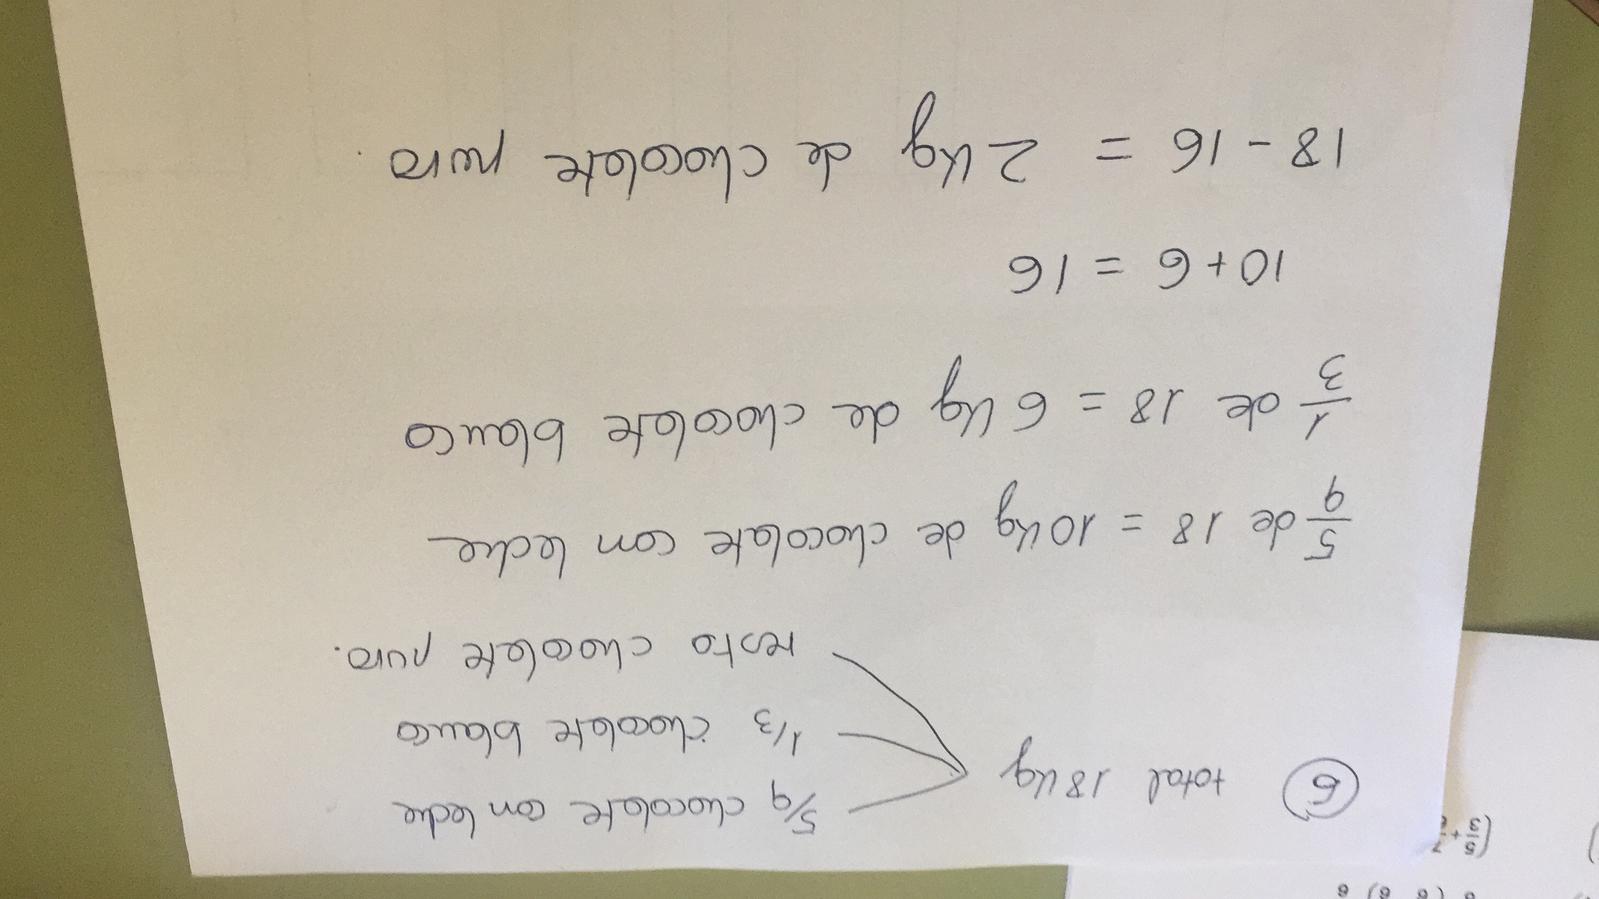 6 total 18 kg
5/9 chocolate con leche
1/3 chocolate blanco
resto chocolate puro.
5/9 de 18 = 10 kg de chocolate con leche
1/3 de 18 = 6 kg de chocolate blanco
10 + 6 = 16
18 - 16 = 2 kg de chocolate puro.